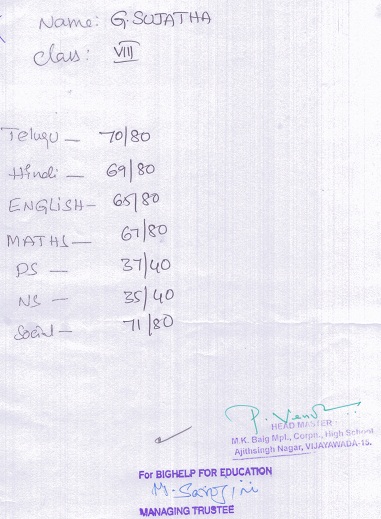 Name: G. SUJATHA
Class: VIII
Telugu — 70/80
Hindi — 69/80
ENGLISH — 65/80
MATHS — 67/80
PS — 37/40
NS — 35/40
Social — 71/80
HEAD MASTER
M.K. Baig Mpl., Corpn., High School
Ajithsingh Nagar, VIJAYAWADA-15.
For BIGHELP FOR EDUCATION
M. Sarojini
MANAGING TRUSTEE